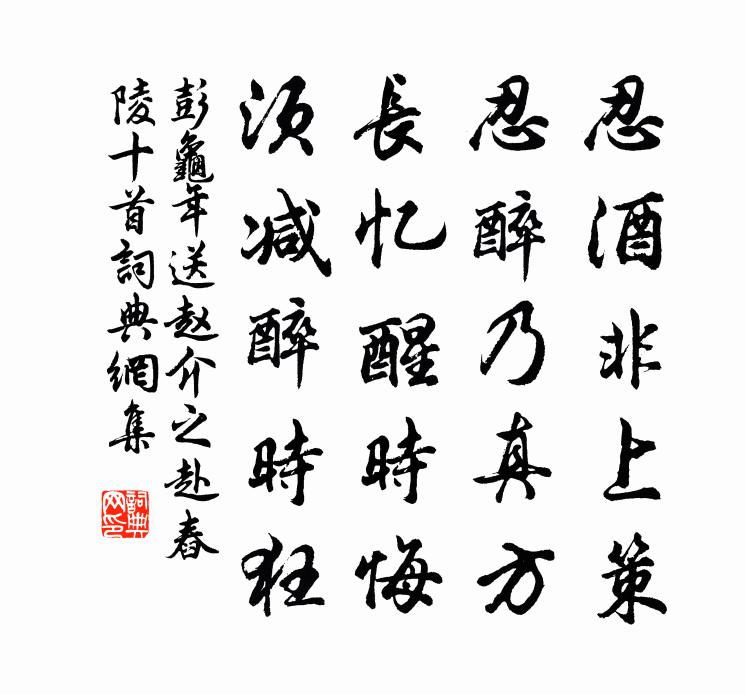 忍酒非上策
忍醉乃真方
長忆醒時悔
須减醉時狂
彭龜年送赵介之赴舂
陵十首詞典網集
詞典网印